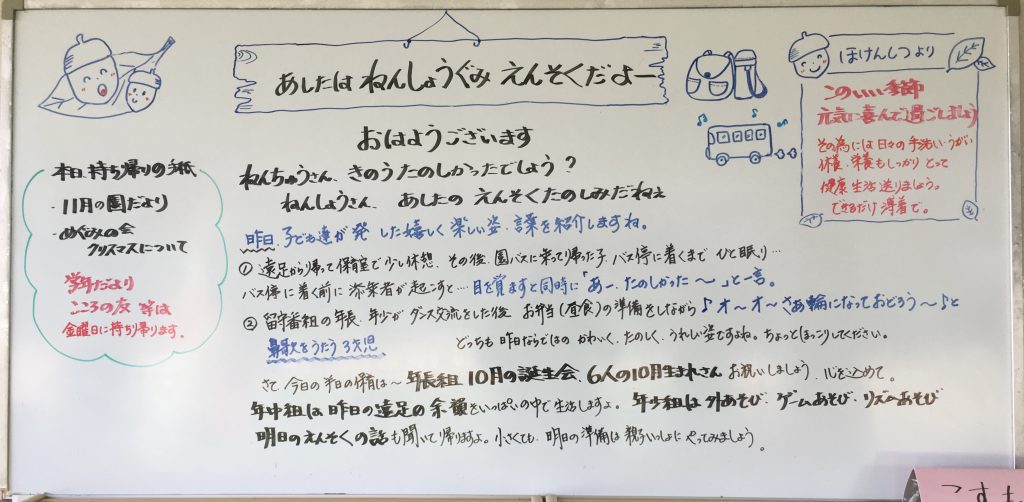 あしたは ねんしょうぐみ えんそくだよー
おはようございます
ねんちゅうさん、きのうたのしかったでしょう？
ねんしょうさん、あしたの えんそくたのしみだねぇ
昨日、子ども達が発した嬉しく楽しい姿、言葉を紹介しますね。
① 遠足から帰って保育室で少し休憩、その後、園バスに乗って帰った子、バス停に着くまで ひと眠り…
バス停に着く前に添乗者が起こすと…目を覚ますと同時に「あー、たのしかった～」と一言。
② 留守番組の年長、年少がダンス交流をした後、お弁当(昼食)の準備をしながら♪オ～オ～さあ輪になっておどろう～♪と
鼻歌をうたう3才児
どっちも昨日ならではの かわいく、たのしく、うれしい姿ですよね。ちょっとほっこりしてください。
さて、今日の半日の保育は～年長組 10月の誕生会、6人の10月生まれさん お祝いしましょう、心を込めて。
年中組は昨日の遠足の余韻をいっぱいの中で生活しますよ。年少組は外あそび、ゲームあそび、リズムあそび
明日のえんそくの話も聞いて帰りますよ。小さくても、明日の準備は親子いっしょにやってみましょう。
本日、持ち帰りの手紙
・11月の園だより
・めぐみの会
クリスマスについて
学年だより
こころの友 等は
金曜日に持ち帰ります。
ほけんしつより
このいい季節
元気に喜んで過ごしましょう
その為には日々の手洗い・うがい
休養、栄養もしっかりとって
健康生活送りましょう。
できるだけ薄着で。